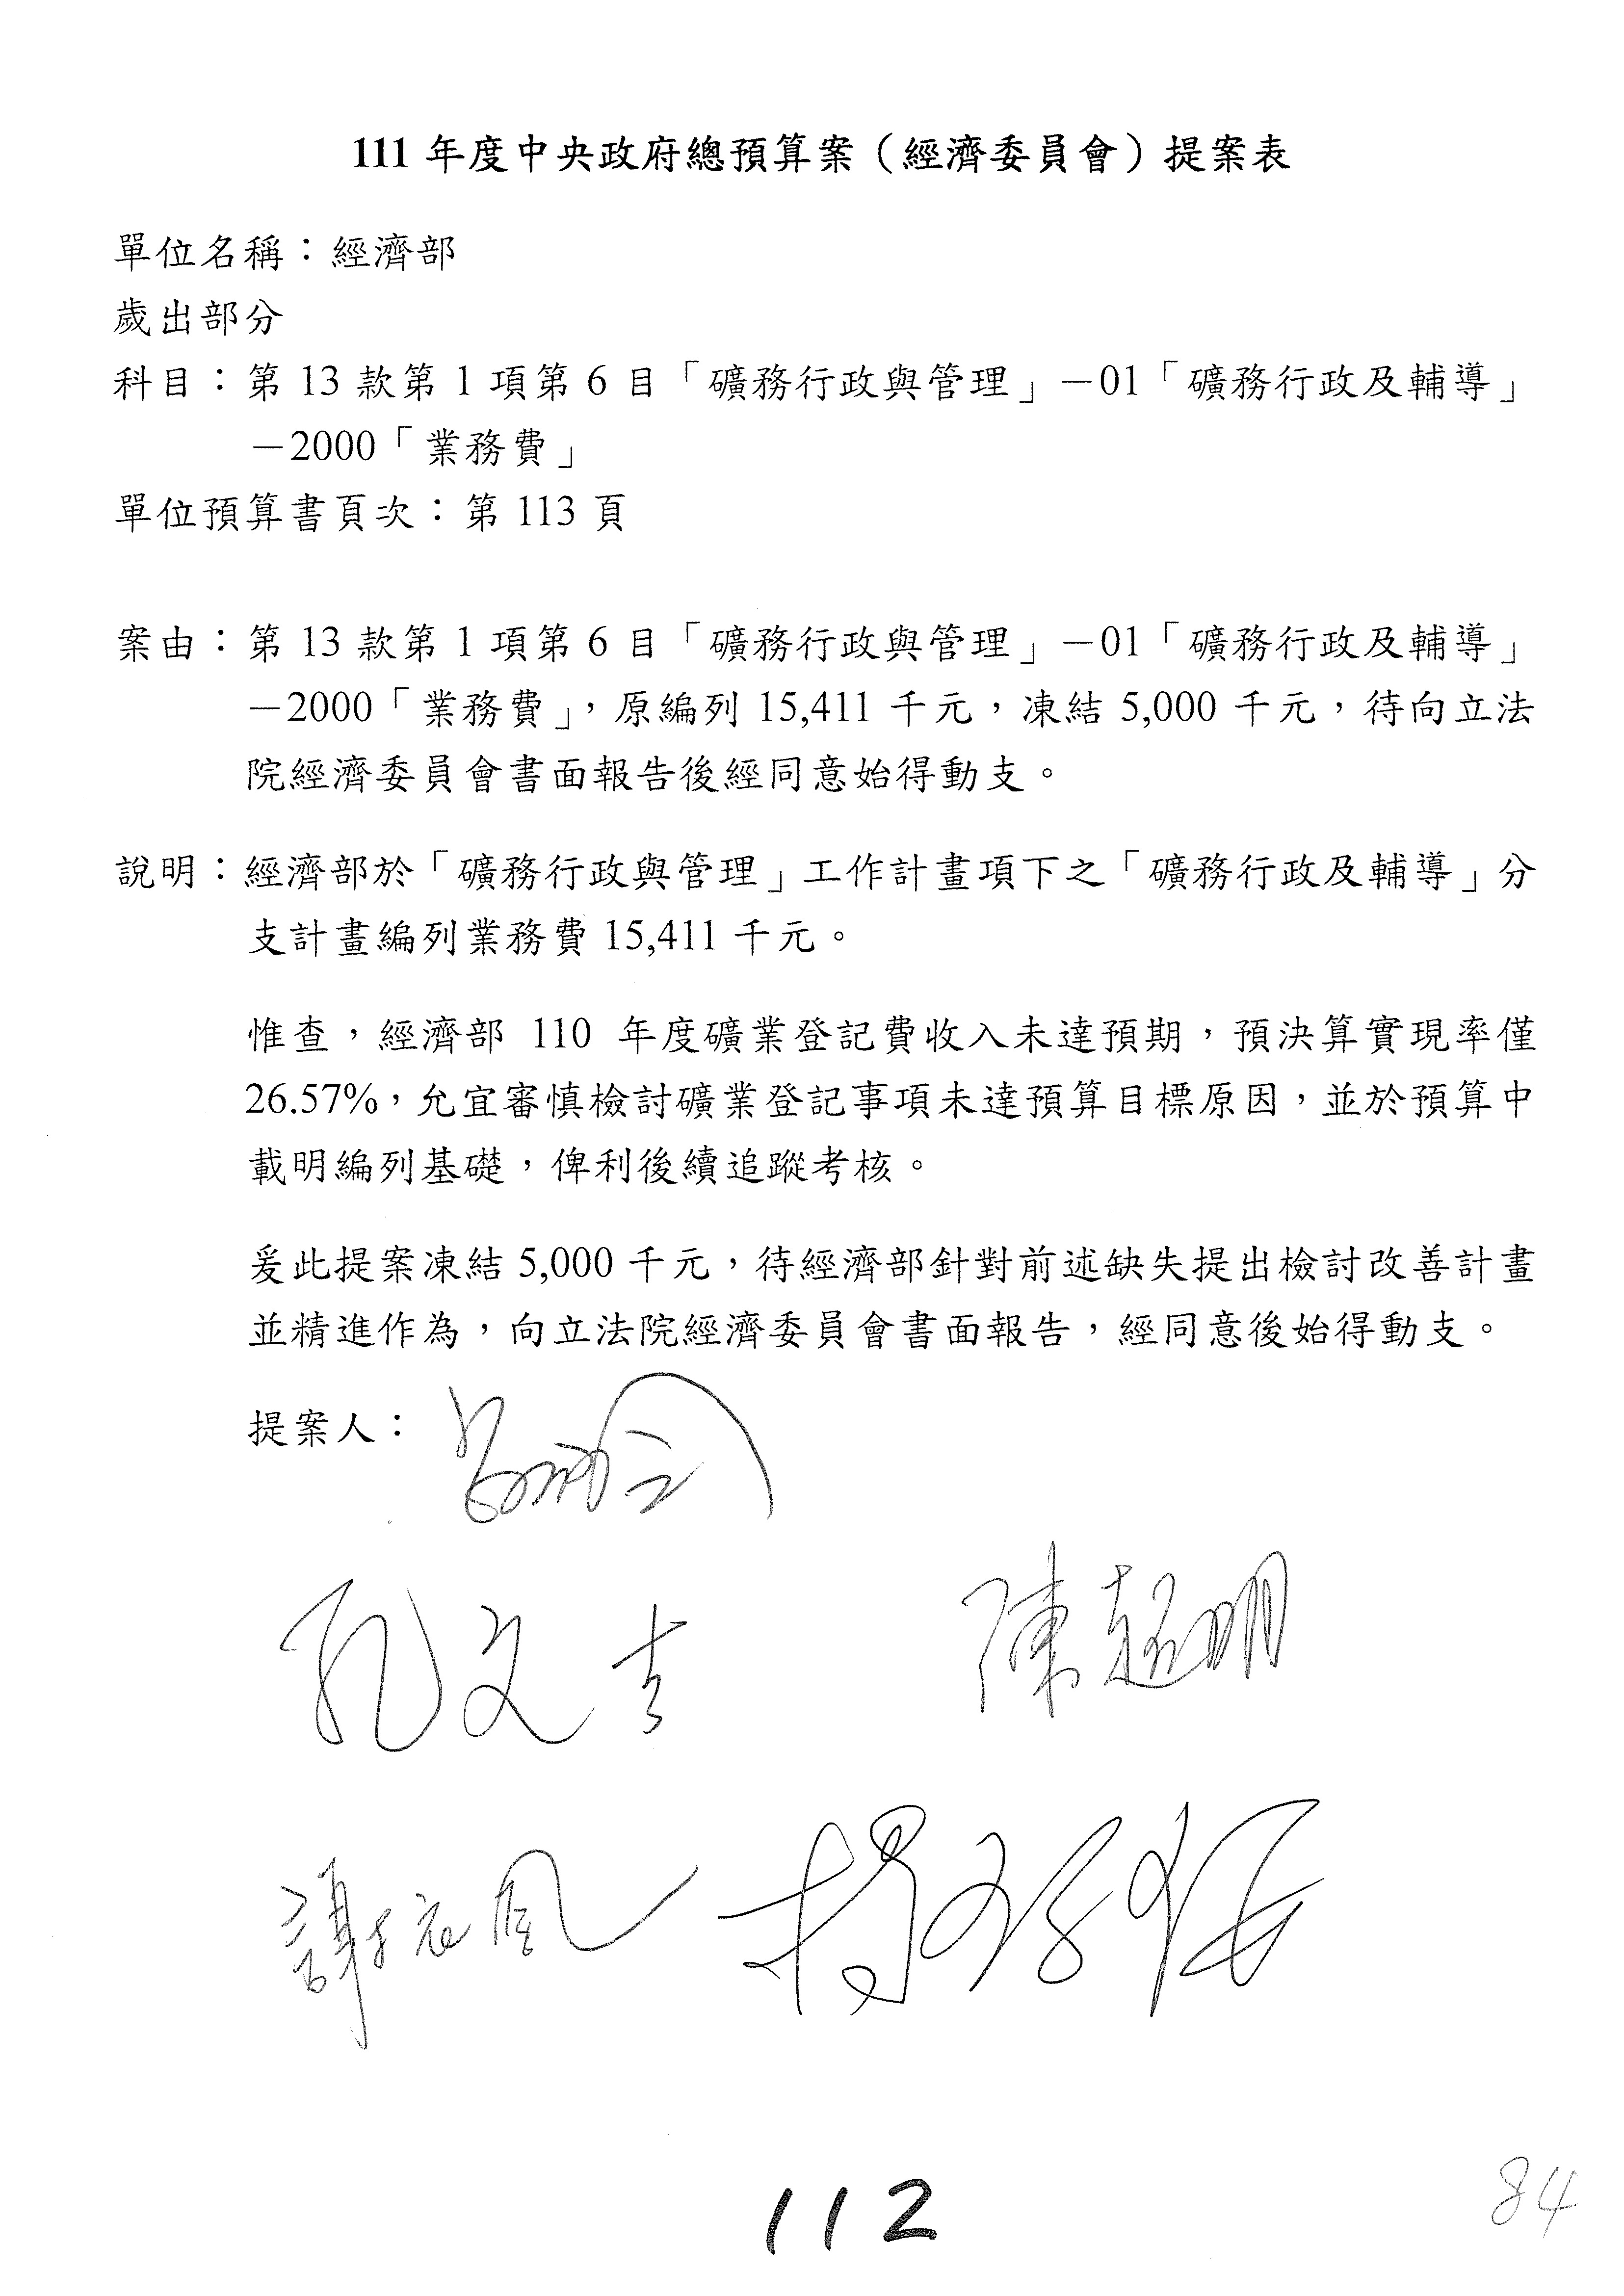 111 年度中央政府總預算案（經濟委員會）提案表
單位名稱：經濟部
歲出部分
科目：第 13 款第 1 項第 6 目「礦務行政與管理」－01「礦務行政及輔導」
－2000「業務費」
單位預算書頁次：第 113 頁
案由：第 13 款第 1 項第 6 目「礦務行政與管理」－01「礦務行政及輔導」
－2000「業務費」，原編列 15,411 千元，凍結 5,000 千元，待向立法
院經濟委員會書面報告後經同意始得動支。
說明：經濟部於「礦務行政與管理」工作計畫項下之「礦務行政及輔導」分
支計畫編列業務費 15,411 千元。
惟查，經濟部 110 年度礦業登記費收入未達預期，預決算實現率僅
26.57%，允宜審慎檢討礦業登記事項未達預算目標原因，並於預算中
載明編列基礎，俾利後續追蹤考核。
爰此提案凍結 5,000 千元，待經濟部針對前述缺失提出檢討改善計畫
並精進作為，向立法院經濟委員會書面報告，經同意後始得動支。
提案人：
孔文吉 陳超明
謝衣風
112
84